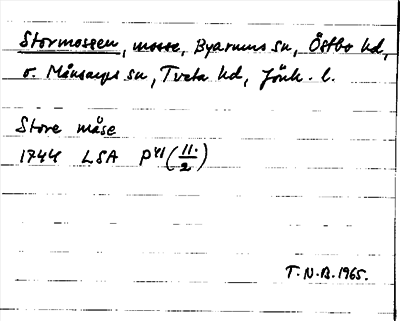 Stormossen, mosse, Byarums sn, Östbo hd,
o. Månsarps sn, Tveta hd, Jönk. l.
Store måse
1744 LSA P41 (11./2)
T.N.B. 1965.